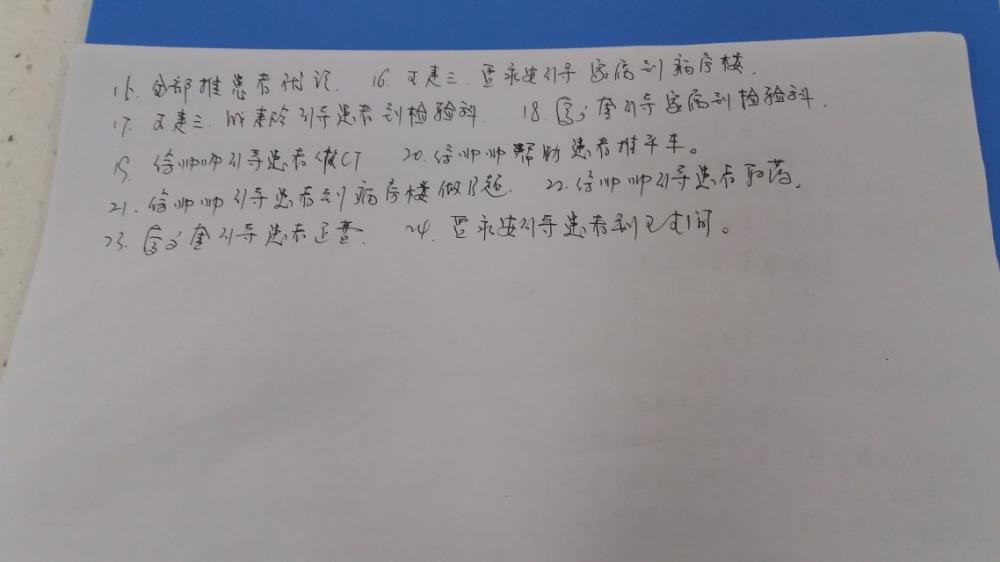 15. 全部推患者 16. 建三. 永安引导家病到病房楼.
17. 建三. 成建玲引导患者到检验科 18. 奎引导家病到检验科.
19. 徐帅帅引导患者做CT 20. 徐帅帅帮助患者推平车。
21. 徐帅帅引导患者到病房楼做B超. 22. 徐帅帅引导患者取药.
23. 奎引导患者查. 24. 永安引导患者到卫生间。